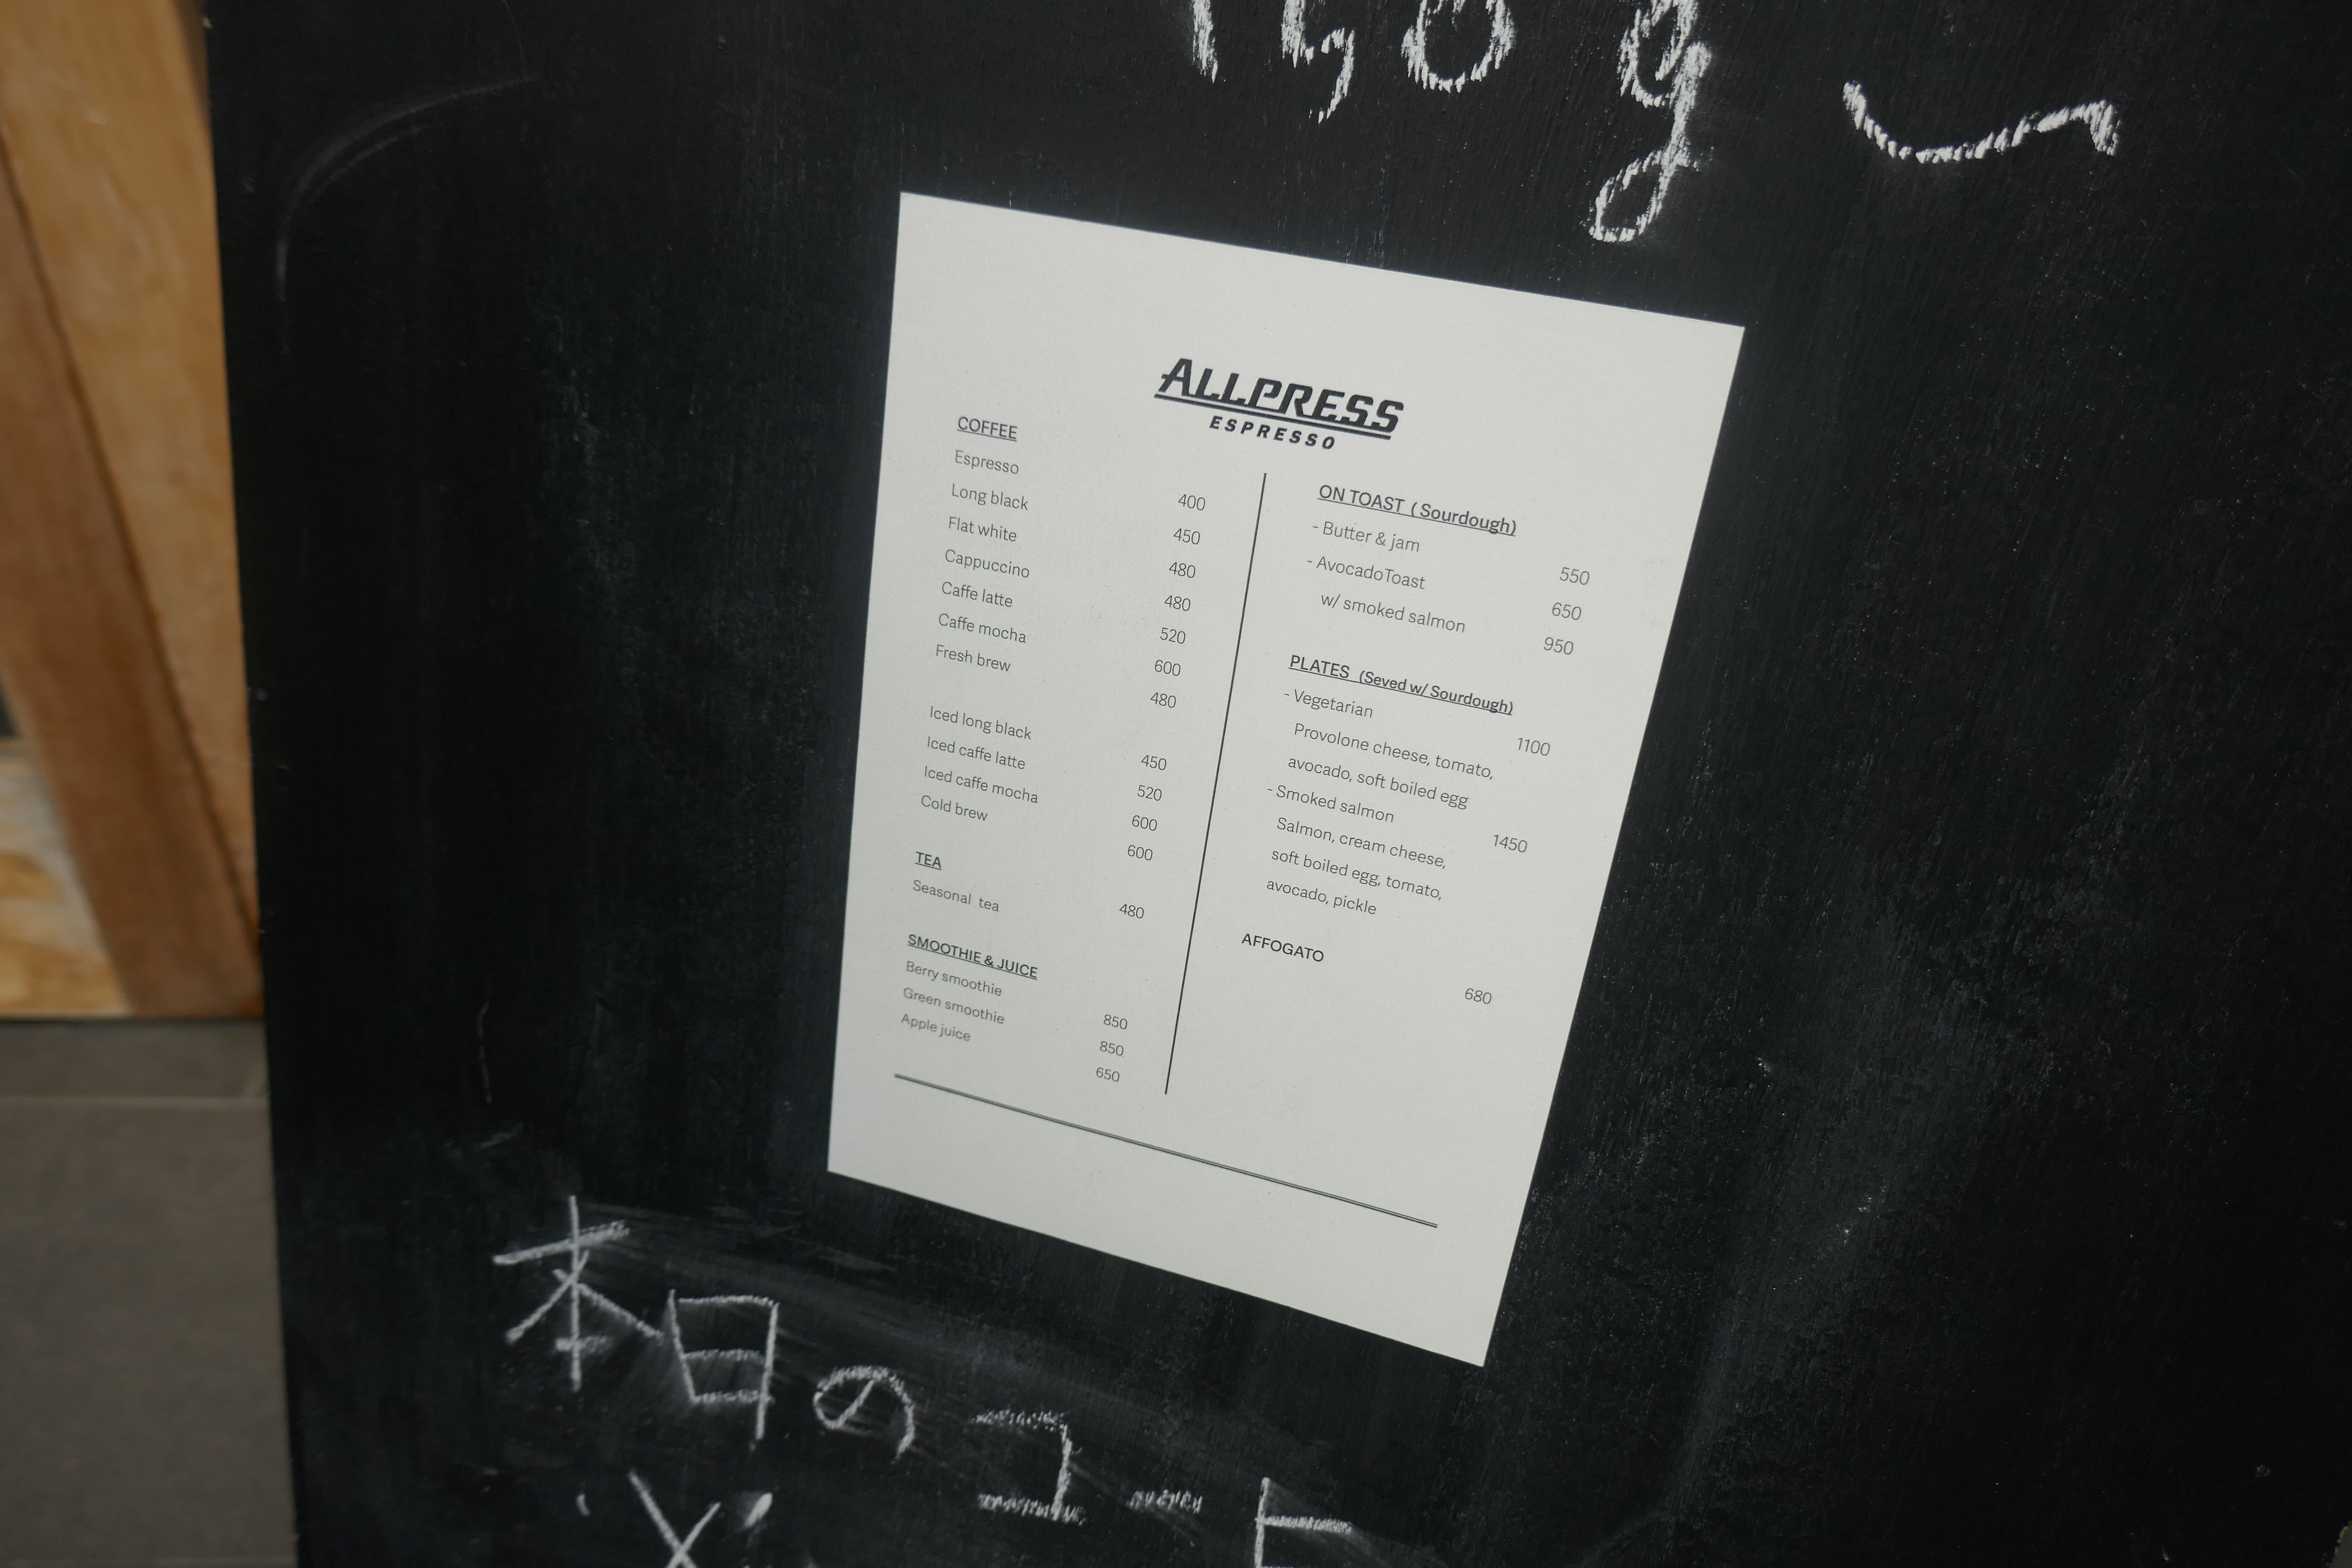 150g ~
ALLPRESS
ESPRESSO
COFFEE
Espresso 400
Long black 450
Flat white 480
Cappuccino 480
Caffe latte 520
Caffe mocha 600
Fresh brew 480
Iced long black 450
Iced caffe latte 520
Iced caffe mocha 600
Cold brew 600
TEA
Seasonal tea 480
SMOOTHIE & JUICE
Berry smoothie 850
Green smoothie 850
Apple juice 650
ON TOAST ( Sourdough)
- Butter & jam 550
- AvocadoToast 650
w/ smoked salmon 950
PLATES (Seved w/ Sourdough)
- Vegetarian 1100
Provolone cheese, tomato,
avocado, soft boiled egg
- Smoked salmon 1450
Salmon, cream cheese,
soft boiled egg, tomato,
avocado, pickle
AFFOGATO 680
本日のコート